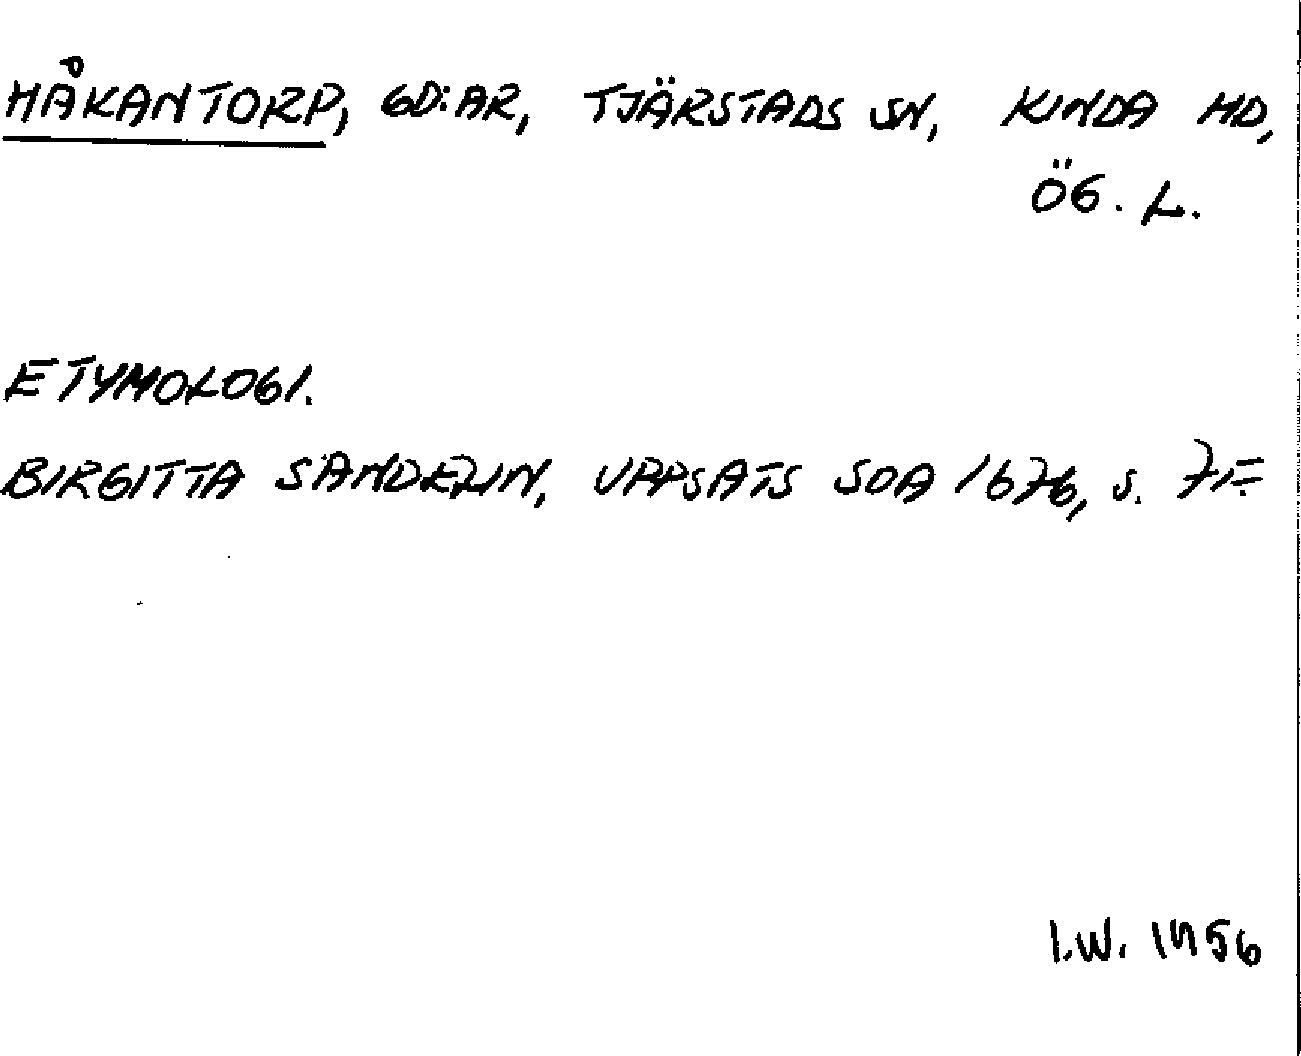 HÅKANTORP, GD:AR, TJÄRSTADS SN, KINDA HD,
ÖG. L.
ETYMOLOGI.
BIRGITTA SANDELIN, UPPSATS SOA 1676, S. 7F.
I.W. 1956